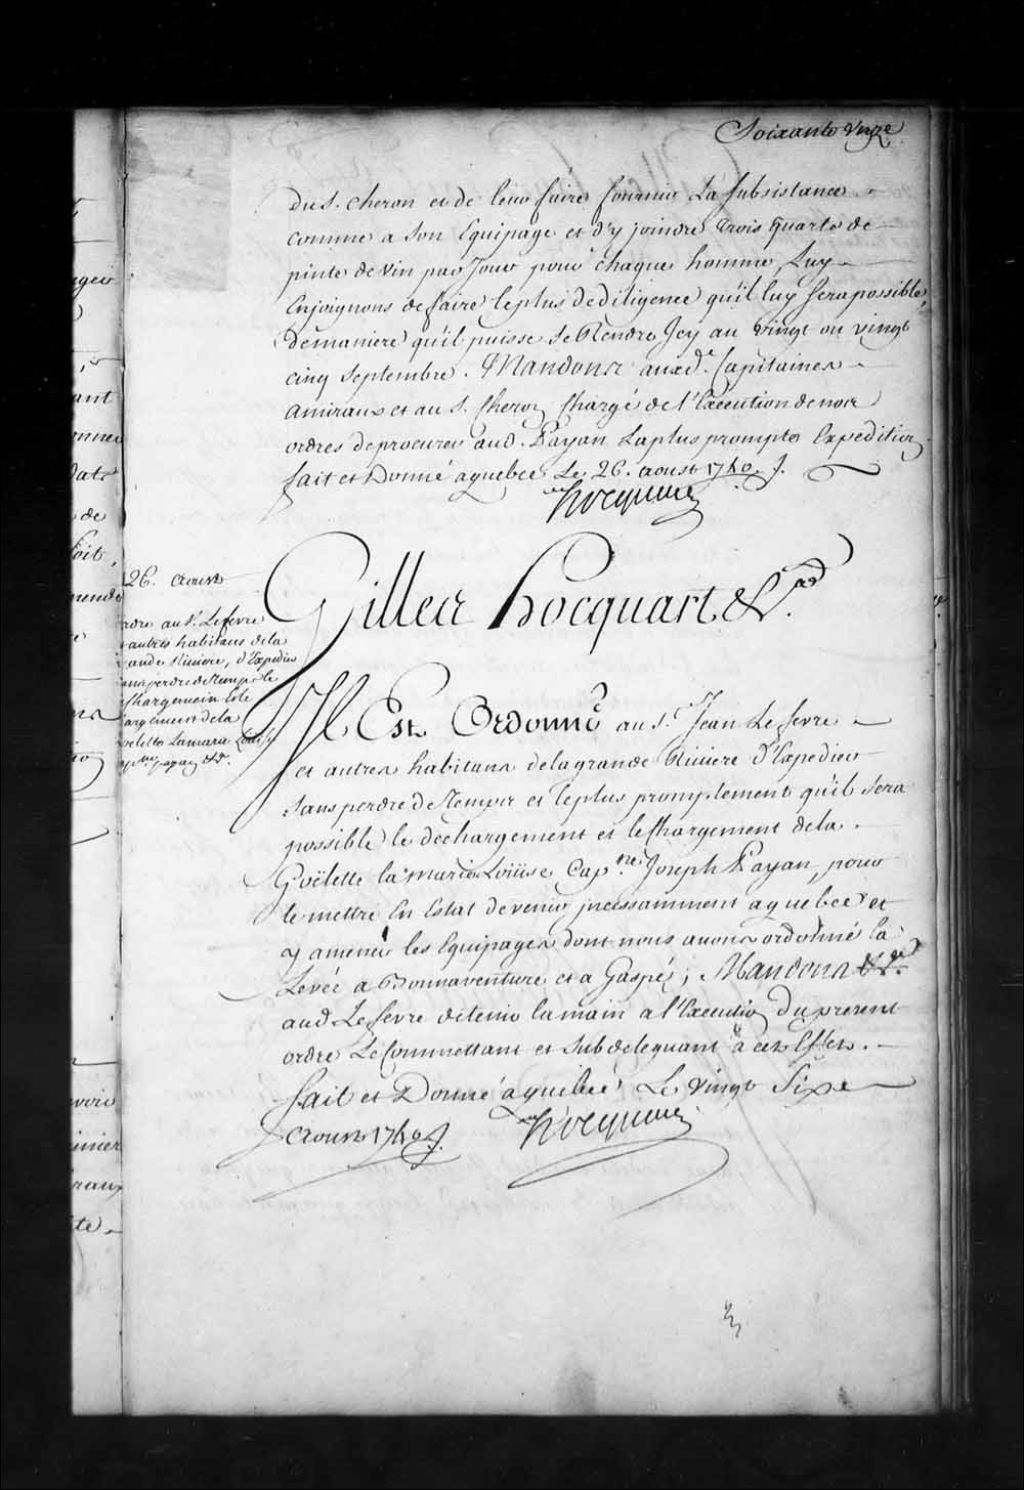 Soixante unze
du S. Cheron et de leur faire fournir La subsistance
comme a son Equipage et d'y joindre trois quarts de
pinte de vin par Jour pour chaque homme, Luy
Enjoignons de faire le plus de diligence qu'il luy sera possible,
de maniere qu'il puisse se Rendre Jcy au vingt ou vingt
cinq Septembre. Mandons aux d. Capitaines
amiraux et au S. Cheron Chargé de l'Execution de nos
ordres de procurer aud. Payan La plus prompte Expedition
fait et Donné a quebec Le 26. aoust 1740 ./.
hocquart
26. aoust
ordre au S. Lefevre
autres habitans de la
grande Riviere, d'Expedier
sans perdre de temps le
chargement de la
goelette La marie Louise
Cap.ne payan &a.
Gilles hocquart &a.
Il Est Ordonné au S.r Jean Le fevre
et autres habitans de la grande Riviere d'Expedier
sans perdre de temps et le plus promptement qu'il sera
possible le dechargement et le Chargement de la
Goëlette la marie Loüise Cap.ne Joseph Payan, pour
le mettre En Estat de venir incessamment a quebec et
y amener les Equipages dont nous avons ordonné la
Levée a Bonnaventure et a Gaspé; Mandons &a.
aud. Le fevre de tenir la main a l'Execution du present
ordre Le Commettant et subdeleguant a cet Effet.
fait et Donné a quebec Le vingt Sixe
aoust 1740 ./. hocquart